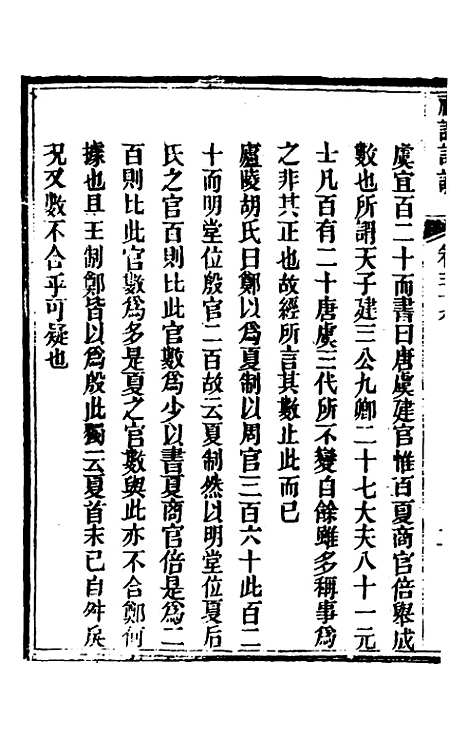 虞宜百二十而書曰唐虞建官惟百夏商官倍舉成
數也所謂天子建三公九卿二十七大夫八十一元
士凡百有二十唐虞三代所不變自餘雖多稱事爲
之非其正也故經所言其數止此而已
廬陵胡氏曰鄭以爲夏制以周官三百六十此百二
十而明堂位殷官二百故云夏制然以明堂位夏后
氏之官百則比此官數爲少以書夏商官倍是爲二
百則比此官數爲多是夏之官數與此亦不合鄭何
據也且王制鄭皆以爲殷此獨云夏首末已自舛戾
況又數不合乎可疑也